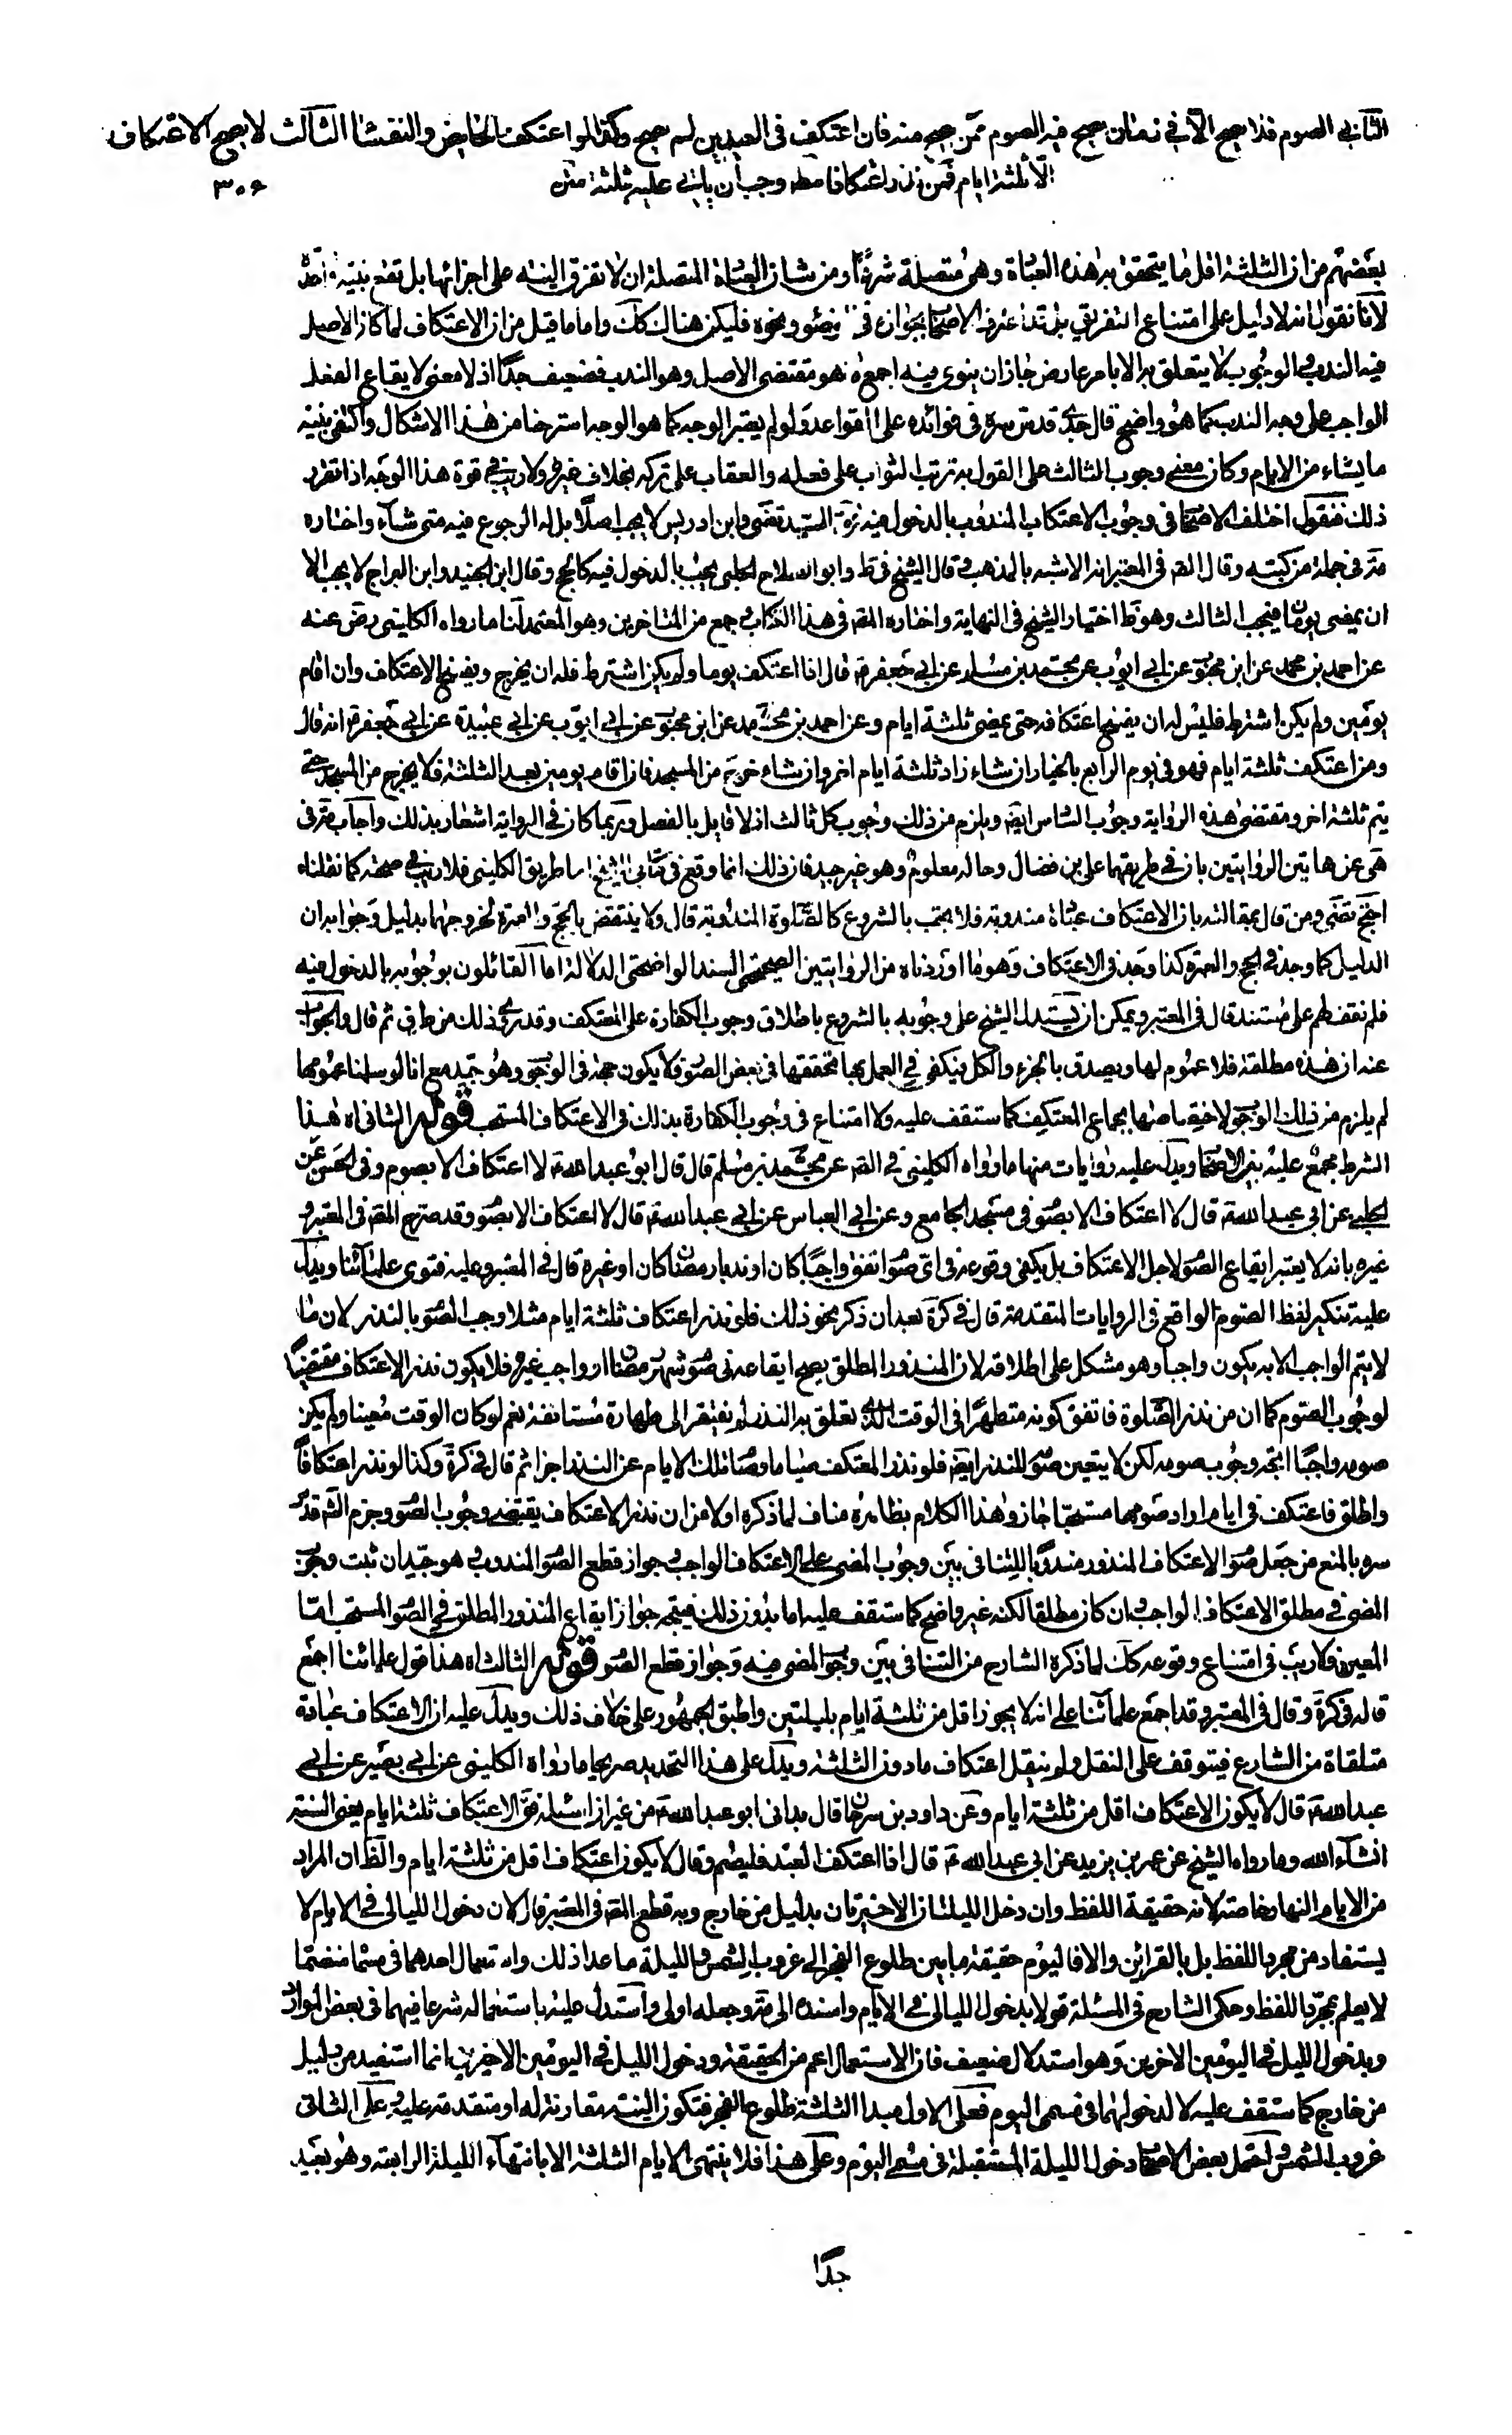 الثانى الصوم فلا يصح الا فى زمان يصح فيه الصوم ممن يصح منه فان اعتكف فى العيدين لم يصح وكذا لو اعتكفت الحايض والنفساء الثالث لا يصح الاعتكاف
الا ثلثة ايام فمن نذر اعتكافا مطلقا وجب ان ياتى عليه ثلثة متن
٣٠٤
بعضهم من ان الثلثة اقل ما يتحقق به هذه العبادة وهى متصلة شرعا ومن شان العبادة المتصلة ان لا تفرق النية على اجزائها بل تقع بنية واحدة
لانا نقول انه لا دليل على امتناع التفريق بل قد اعترف الاصحاب بجوازه فى الوضوء ونحوه فليكن هنا كك واما ما قيل من ان الاعتكاف لما كان الاصل
فيه الندب والوجوب لا يتعلق به الا بامر عارض جاز ان ينوى فيه اجمع ما هو مقتضى الاصل وهو الندب فضعيف جدا اذ لا معنى لايقاع الفعل
الواجب على وجه الندب كما هو واضح قال جدى قدس سره فى فوائده على القواعد ولو لم يعتبر الوجه كما هو الوجه استرحنا من هذا الاشكال واكتفى بنية
ما يشاء من الايام وكان معنى وجوب الثالث على القول به ترتب الثواب على فعله والعقاب على تركه بخلاف غيره ولا ريب فى قوة هذا الوجه اذا تقرر
ذلك فنقول اختلف الاصحاب فى وجوب الاعتكاف المندوب بالدخول فيه السيد المرتضى وابن ادريس لا يجب اصلا بل له الرجوع فيه متى شاء واختاره
مة فى جملة من كتبه وقال المص فى المعتبر انه الاشبه بالمذهب وقال الشيخ فى ط وابو الصلاح الحلبى يجب بالدخول فيه كالحج وقال ابن الجنيد وابن البراج لا يجب الا
ان يمضى يومان فيجب الثالث وهو ظ اختيار الشيخ فى النهاية واختاره المص فى هذا الكتاب وجمع من المتاخرين وهو المعتمد لنا ما رواه الكلينى رضى عنه
عن احمد بن محمد عن ابن محبوب عن ابى ايوب عن محمد بن مسلم عن ابى جعفر ع قال اذا اعتكف يوما ولم يكن اشترط فله ان يخرج ويفسخ الاعتكاف وان اقام
يومين ولم يكن اشترط فليس له ان يفسخ اعتكافه حتى يمضى ثلثة ايام وعن احمد بن محمد عن ابن محبوب عن ابى ايوب عن ابى عبيدة عن ابى جعفر ع انه قال
ومن اعتكف ثلثة ايام فهو فى يوم الرابع بالخيار ان شاء زاد ثلثة ايام اخر وان شاء خرج من المسجد فان اقام يومين بعد الثلثة فلا يخرج من المسجد حتى
يتم ثلثة اخر ومقتضى هذه الرواية وجوب السادس ايض ويلزم من ذلك وجوب كل ثالث اذ لا قايل بالفصل وربما كان فى الرواية اشعار بذلك واجاب مة فى
هى عن هاتين الروايتين بان فى طريقهما على بن فضال وحاله معلوم وهو غير جيد فان ذلك انما وقع فى كتابى الشيخ اما طريق الكلينى فلا ريب فى صحته كما نقلناه
احتج المرتضى ومن قال بمقالته بان الاعتكاف عبادة مندوبة فلا يجب بالشروع كالصلوة المندوبة قال ولا ينتقض بالحج والعمرة لخروجهما بدليل وجوابه ان
الدليل كما وجد فى الحج والعمرة كذا وجد فى الاعتكاف وهو ما اوردناه من الروايتين الصحيحتى السند الواضحتى الدلالة اما القائلون بوجوبه بالدخول فيه
فلم نقف لهم على مستند قال فى المعتبر ويمكن ان يستدل الشيخ على وجوبه بالشروع باطلاق وجوب الكفارة على المعتكف وقد روى ذلك من طرق ثم قال والجواب
عنه ان هذه مطلقة فلا عموم لها ويصدق بالجزء والكل فيكفى فى العمل بها تحققها فى بعض الصور فلا يكون حجة فى الوجوب وهو جيد مع انا لو سلمنا عمومها
لم يلزم من ذلك الوجوب لاختصاصها بجماع المعتكف كما ستقف عليه ولا امتناع فى وجوب الكفارة بذلك فى الاعتكاف المستحب قوله الثانى اه هذا
الشرط مجمع عليه بين الاصحاب ويدل عليه روايات منها ما رواه الكلينى فى الصحيح عن محمد بن مسلم قال قال ابو عبد الله ع لا اعتكاف الا بصوم وفى الحسن عن
الحلبى عن ابى عبد الله ع قال لا اعتكاف الا بصوم فى مسجد الجامع وعن ابى العباس عن ابى عبد الله ع قال لا اعتكاف الا بصوم وقد صرح المص فى المعتبر و
غيره بانه لا يعتبر ايقاع الصوم لاجل الاعتكاف بل يكفى وقوعه فى اى صوم اتفق واجبا كان او ندبا رمضان كان او غيره قال فى المعتبر وعليه فتوى علمائنا ويدل
عليه تنكير لفظ الصوم الواقع فى الروايات المتقدمة قال فى كرة بعد ان ذكر نحو ذلك فلو نذر اعتكاف ثلثة ايام مثلا وجب الصوم بالنذر لان ما
لا يتم الواجب الا به يكون واجبا وهو مشكل على اطلاقه لان المنذور المطلق يصح ايقاعه فى صوم شهر رمضان او واجب غيره فلا يكون نذر الاعتكاف مقتضيا
لوجوب الصوم كما ان من نذر الصلوة فاتفق كونه متطهرا فى الوقت الذى تعلق به النذر لم يفتقر الى طهارة مستانفة نعم لو كان الوقت معينا ولم يكن
صومه واجبا اتجه وجوب صومه لكن لا يتعين صومه للنذر ايض فلو نذر المعتكف صياما وصام تلك الايام عن النذر اجزا ثم قال فى كرة وكذا لو نذر اعتكافا
واطلق فاعتكف فى ايام اراد صومها مستحبا جاز وهذا الكلام بظاهره مناف لما ذكره اولا من ان نذر الاعتكاف يقتضى وجوب الصوم وجزم الش قدس
سره بالمنع من جعل صوم الاعتكاف المنذور مندوبا للتنافى بين وجوب المضى على الاعتكاف الواجب وجواز قطع الصوم المندوب وهو جيد ان ثبت وجوب
المضى فى مطلق الاعتكاف الواجب وان كان مطلقا لكنه غير واضح كما ستقف عليه اما بدون ذلك فيتجه جواز ايقاع المنذور المطلق فى الصوم المستحب اما
المعين فلا ريب فى امتناع وقوعه كك لما ذكره الشارح من التنافى بين وجوب المضى فيه وجواز قطع الصوم قوله الثالث اه هذا قول علمائنا اجمع
قاله فى كرة وقال فى المعتبر وقد اجمع علمائنا على انه لا يجوز اقل من ثلثة ايام بليلتين واطبق الجمهور على خلاف ذلك ويدل عليه ان الاعتكاف عبادة
متلقاة من الشارع فيتوقف على النقل ولم ينقل اعتكاف ما دون الثلثة ويدل على هذا التحديد صريحا ما رواه الكلينى عن ابى بصير عن ابى
عبد الله ع قال لا يكون الاعتكاف اقل من ثلثة ايام وعن داود بن سرحان قال بدانى ابو عبد الله ع من غير ان اساله فقال الاعتكاف ثلثة ايام يعنى السنة
انشاء الله وما رواه الشيخ عن عمر بن يزيد عن ابى عبد الله ع قال اذا اعتكف العبد فليصم وقال لا يكون اعتكاف اقل من ثلثة ايام والظ ان المراد
من الايام النهار خاصة لانه حقيقة اللفظ وان دخل الليلتان الاخيرتان بدليل من خارج وبه قطع المص فى المعتبر قال لان دخول الليالى فى الايام لا
يستفاد من مجرد اللفظ بل بالقرائن والا فاليوم حقيقة ما بين طلوع الفجر الى غروب الشمس والليلة ما عدا ذلك واستعمال احدهما فى مسماه منضما
لا يعلم بمجرد اللفظ وحكى الشارح فى المسئلة قولا بدخول الليالى فى الايام واسنده الى مة وجعله اولى واستدل عليه باستعماله شرعا فيهما فى بعض الموارد
وبدخول الليل فى اليومين الاخرين وهو استدلال ضعيف فان الاستعمال اعم من الحقيقة ودخول الليل فى اليومين الاخيرين انما استفيد من دليل
من خارج كما ستقف عليه لا لدخولهما فى مسمى اليوم فعلى الاول مبدا الثلثة طلوع الفجر فتكون النية مقارنة له او متقدمة عليه وعلى الثانى
غروب الشمس واحتمل بعض الاصحاب دخول الليلة المستقبلة فى مسمى اليوم وعلى هذا فلا ينتهى الايام الثلثة الا بانتهاء الليلة الرابعة وهو بعيد
جدا